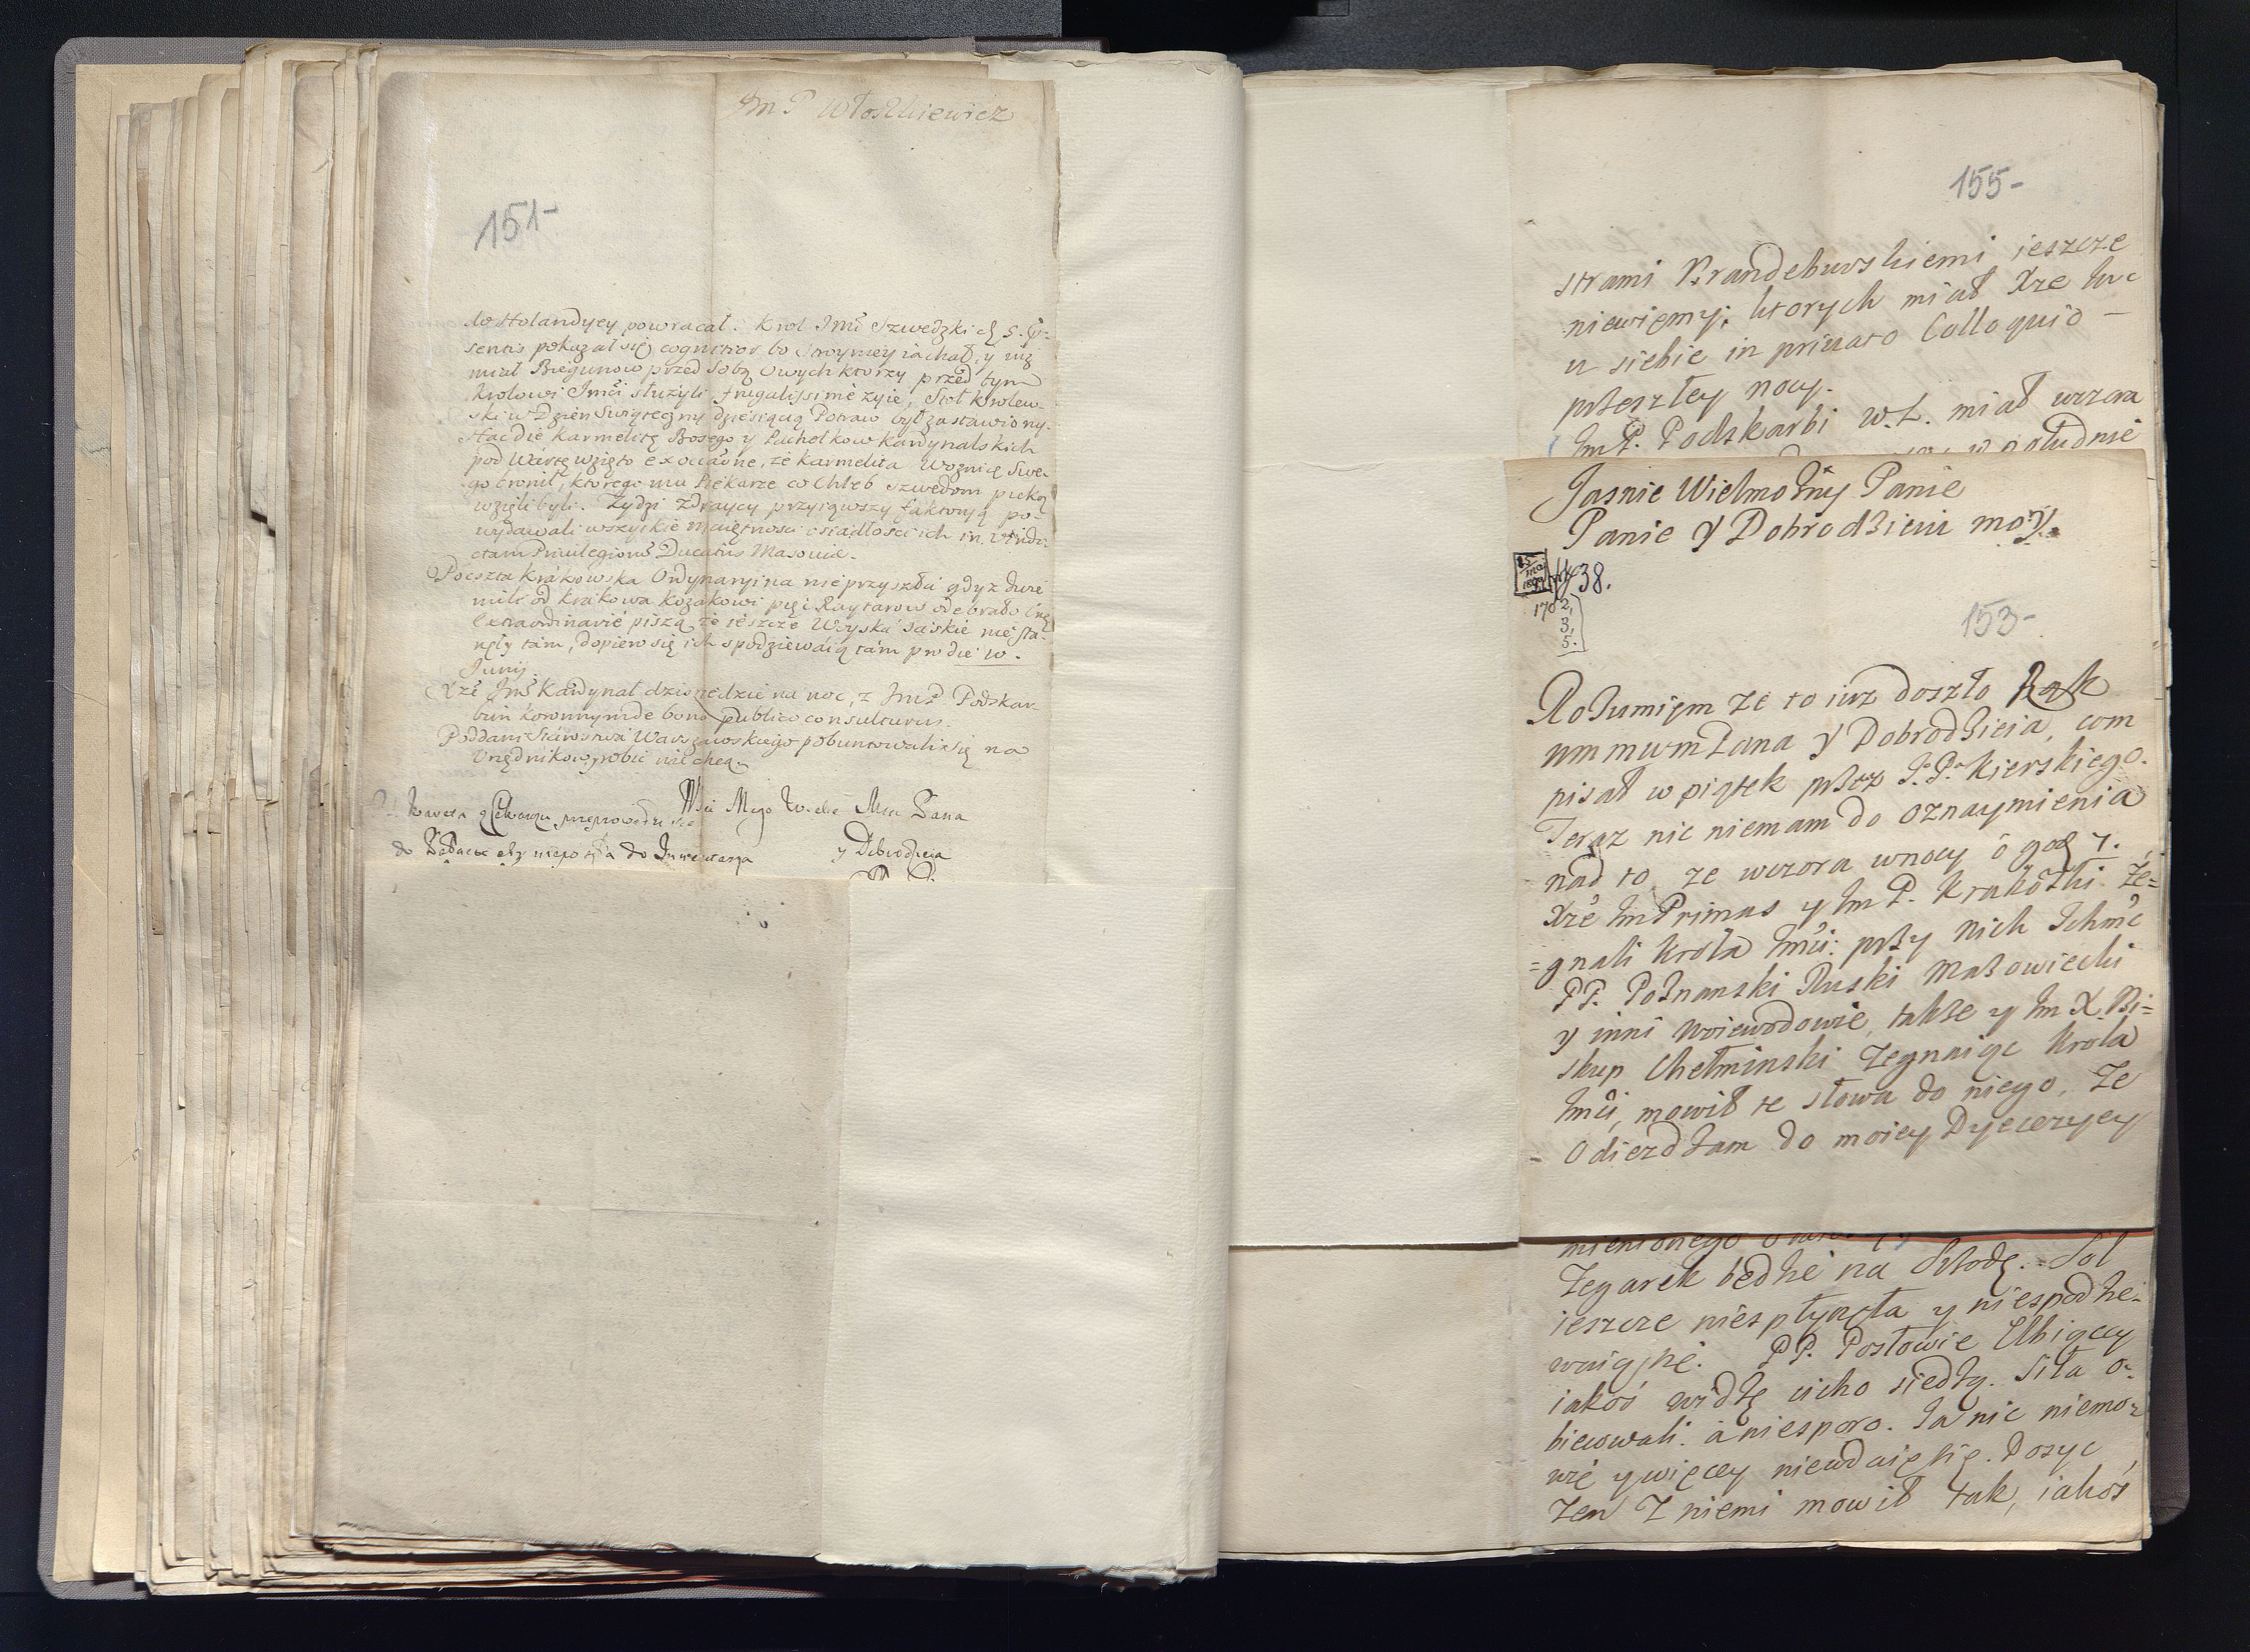 Jm P Włoszkiewicz
151-
do Holandyey powracał. Krol Jmć Szwedzki 5.
sentis pokazał się cognitior bo Stroyniey iachał, y iuż
miał Biegunow przed Sobą Owych ktorzy przed tym
Krolowi Jmći słuzyli, frugalissime żyie, Stoł Krolew-
ski w Dzien Swiąteczny dziesiącią Potraw był zastawiony.
Hac die Karmelitę Bosego y Pachołkow Kardynalskich
pod Wartę wzięto ex occaone, że Karmelita Woznicę Swe-
go bronił, ktorego mu Piekarze co Chleb Szwedom pieką
wzięli byli. Żydzi Zdraycy przysiągwszy
wydawali wszytkie maiętnosci osiadłosci ich in
ctam Privilegiorũ Ducatus Masoviæ.
Poczta Krakowska Ordynaryina nie przyszła gdyz dwie
mile od Krakowa Kozakowi pięć Raytarow odebrało
Extraordinarie piszą, że ieszcze Woyska Saskie nie sta-
nęły tam, dopiero się ich spodziewaią tam pro die 10.
Junij.
Xże Jmć Kardynał dzis iedzie na noc, z JmP Podskar-
bim Koronnym de bono publico consulturus.
Poddani Starostwa Warszawskiego pobuntowali się na
Urzędnikow, robic nie chcą.
Mego Pana
do Inwentarza y Dobrodzieia
155-
strami Brandeburskiemi ieszcze
niewiemy, ktorych miał Xże Jmc
u siebie in privato Colloquio –
przeszłey nocy.
Jm P. Podskarbi W. L. miał wczora
w południe
Jasnie Wielmożny Panie
Panie y Dobrodzieiu moy.
38.
1702,
3,
5.
153-
Rozumiem ze to iuz doszło Rąk
WmmwmPana y Dobrodzieia, com
pisał w piątek przez J. P. Kierskiego.
Teraz nic niemam do oznaymienia
nad to, ze wczora wnocy o god 7.
Xże Jm Primas y Jm P. Krakowski że=
=gnali Krola Jmći: przy nich Ichmć
PP. Poznanski Ruski Mazowiecki
y inni Woiewodowie, takze y Jm X. Bi=
skup Chełminski zegnaiąc Krola
Jmći, mowił te słowa do niego, ze
Odiezdzam do moiey Dyecezyey
mienionego
Zegarek będzie na Szkodę. Sol
ieszcze niespłynęła y niespodzie-
waią się. PP. Posłowie Elbiąscy
iakos widzę cicho siedzą. Siła o-
biecowali. a niesporo. Ja nic niemo-
wię y więcey niewdaię się. Dosyc,
zem z niemi mowił tak, iakos